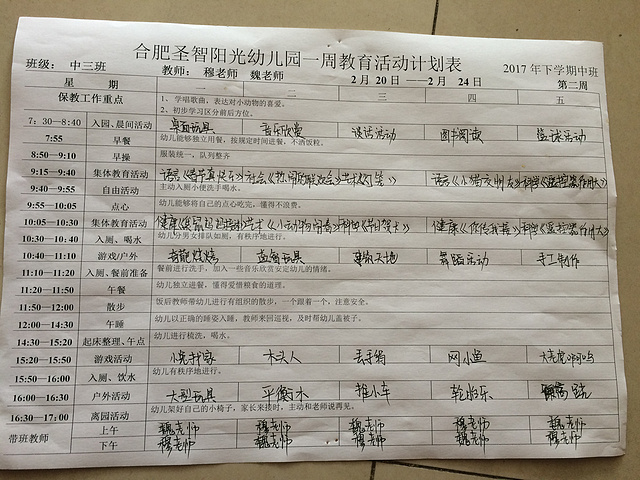 合肥圣智阳光幼儿园一周教育活动计划表
班级: 中三班 教师: 穆老师 魏老师 2月20日——2月24日 2017年下学期中班
星期 一 二 三 四 五 第二周
保教工作重点 1、学唱歌曲,表达对小动物的喜爱。
2、初步学习区分前后方位。
7:30—8:40 入园、晨间活动 桌面玩具 音乐欣赏 谈话活动 图书阅读 篮球活动
7:55 早餐 幼儿能够独立用餐,按规定时间进餐,不洒饭粒。
8:50—9:10 早操 服装统一,队列整齐
9:15—9:40 集体教育活动
9:40—9:55 自由活动 主动入厕小便洗手喝水。
9:55—10:05 点心 幼儿能够将自己的点心吃完,懂得不浪费。
10:05—10:30 集体教育活动
10:30—10:40 入厕、喝水 幼儿分男女排队如厕,有秩序地进行。
10:40—11:10 游戏/户外 益智游戏 舞蹈活动 手工制作
11:10—11:20 入厕、餐前准备 餐前进行洗手,加入一些音乐欣赏安定幼儿的情绪。
11:20—11:50 午餐 幼儿独立进餐,懂得爱惜粮食的道理。
11:50—12:00 散步 饭后教师带幼儿进行有组织的散步,一个跟着一个,注意安全。
12:00—14:30 午睡 幼儿以正确的睡姿入睡,教师来回巡视,及时帮幼儿盖被子。
14:30—15:20 起床整理、午点 幼儿进行梳洗,喝水。
15:20—15:50 游戏活动 木头人 丢手绢 网小鱼
15:50—16:00 入厕、饮水 幼儿有秩序地进行。
16:00—16:30 户外活动 大型玩具 平衡木 推小车
16:30—17:00 离园活动 幼儿架好自己的小椅子,家长来接时,主动和老师说再见。
带班教师 上午 魏老师 穆老师 魏老师 穆老师 魏老师
下午 穆老师 魏老师 穆老师 魏老师 穆老师